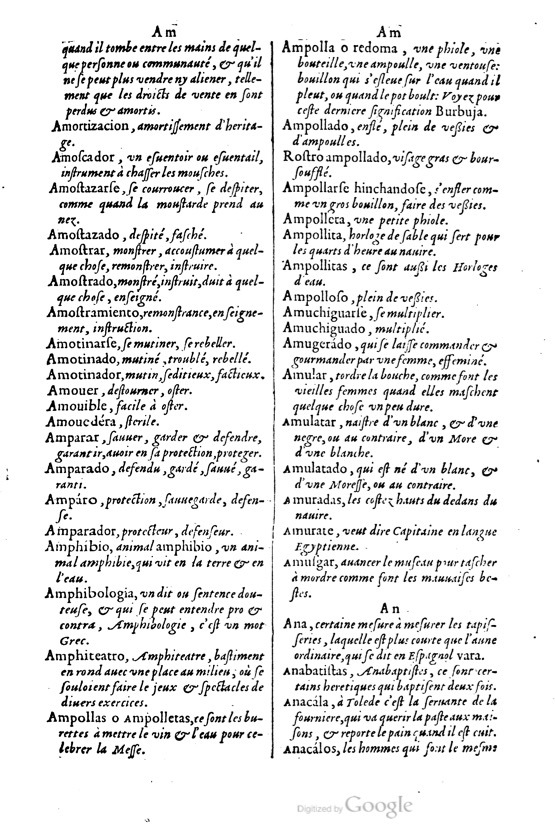 Am
quand il tombe entre les mains de quel-
que personne ou communauté, & qu'il
ne se peut plus vendre ny aliener, telle-
ment que les droicts de vente en sont
perdus & amortis.
Amortizacion, amortissement d'herita-
ge.
Amoscador, vn esuentoir ou esuentail,
instrument à chasser les mousches.
Amostazarse, se courroucer, se despiter,
comme quand la moustarde prend au
nez.
Amostazado, despité, fasché.
Amostrar, monstrer, accoustumer à quel-
que chose, remonstrer, instruire.
Amostrado, monstré, instruit, duit à quel-
que chose, enseigné.
Amostramiento, remonstrance, enseigne-
ment, instruction.
Amotinarse, se mutiner, se rebeller.
Amotinado, mutiné, troublé, rebellé.
Amotinador, mutin, seditieux, factieux.
Amouer, destourner, oster.
Amouible, facile à oster.
Amouedéra, sterile.
Amparar, sauuer, garder & defendre,
garantir, auoir en sa protection, proteger.
Amparado, defendu, gardé, sauué, ga-
ranti.
Ampáro, protection, sauuegarde, defen-
se.
Amparador, protecteur, defenseur.
Amphibio, animal amphibio, vn ani-
mal amphibie, qui vit en la terre & en
l'eau.
Amphibologia, vn dit ou sentence dou-
teuse, & qui se peut entendre pro &
contra, Amphibologie, c'est vn mot
Grec.
Amphiteatro, Amphiteatre, bastiment
en rond auec vne place au milieu, où se
souloient faire le jeux & spectacles de
diuers exercices.
Ampollas o Ampolletas, ce sont les bu-
rettes à mettre le vin & l'eau pour ce-
lebrer la Messe.
Am
Ampolla o redoma, vne phiole, vne
bouteille, vne ampoulle, vne ventouse:
bouillon qui s'esleue sur l'eau quand il
pleut, ou quand le pot boult: Voyez pour
ceste derniere signification Burbuja.
Ampollado, enflé, plein de vessies &
d'ampoulles.
Rostro ampollado, visage gras & bour-
soufflé.
Ampollarse hinchandose, s'enfler com-
me vn gros bouillon, faire des vessies.
Ampolléta, vne petite phiole.
Ampollita, horloge de sable qui sert pour
les quarts d'heure au nauire.
Ampollitas, ce sont aussi les Horloges
d'eau.
Ampolloso, plein de vessies.
Amuchiguarse, se multiplier.
Amuchiguado, multiplié.
Amugerádo, qui se laisse commander &
gourmander par vne femme, effeminé.
Amular, tordre la bouche, comme font les
vieilles femmes quand elles maschent
quelque chose vn peu dure.
Amulatar, naistre d'vn blanc, & d'vne
negre, ou au contraire, d'vn More &
d'vne blanche.
Amulatado, qui est né d'vn blanc, &
d'vne Moresse, ou au contraire.
Amuradas, les costez hauts du dedans du
nauire.
Amurate, veut dire Capitaine en langue
Egyptienne.
Amulgar, auancer le museau pour tascher
à mordre comme font les mauuaises be-
stes.
An
Ana, certaine mesure à mesurer les tapis-
series, laquelle est plus courte que l'aune
ordinaire, qui se dit en Espagnol vara.
Anabatistas, Anabaptistes, ce sont cer-
tains heretiques qui baptisent deux fois.
Anacála, à Tolede c'est la seruante de la
fourniere, qui va querir la paste aux mai-
sons, & reporte le pain quand il est cuit.
Anacálos, les hommes qui font le mesme
Digitized by Google